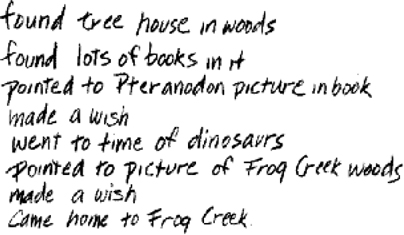 found tree house in woods
found lots of books in it
pointed to Pteranodon picture in book
made a wish
went to time of dinosaurs
pointed to picture of Frog Creek woods
made a wish
Came home to Frog Creek.